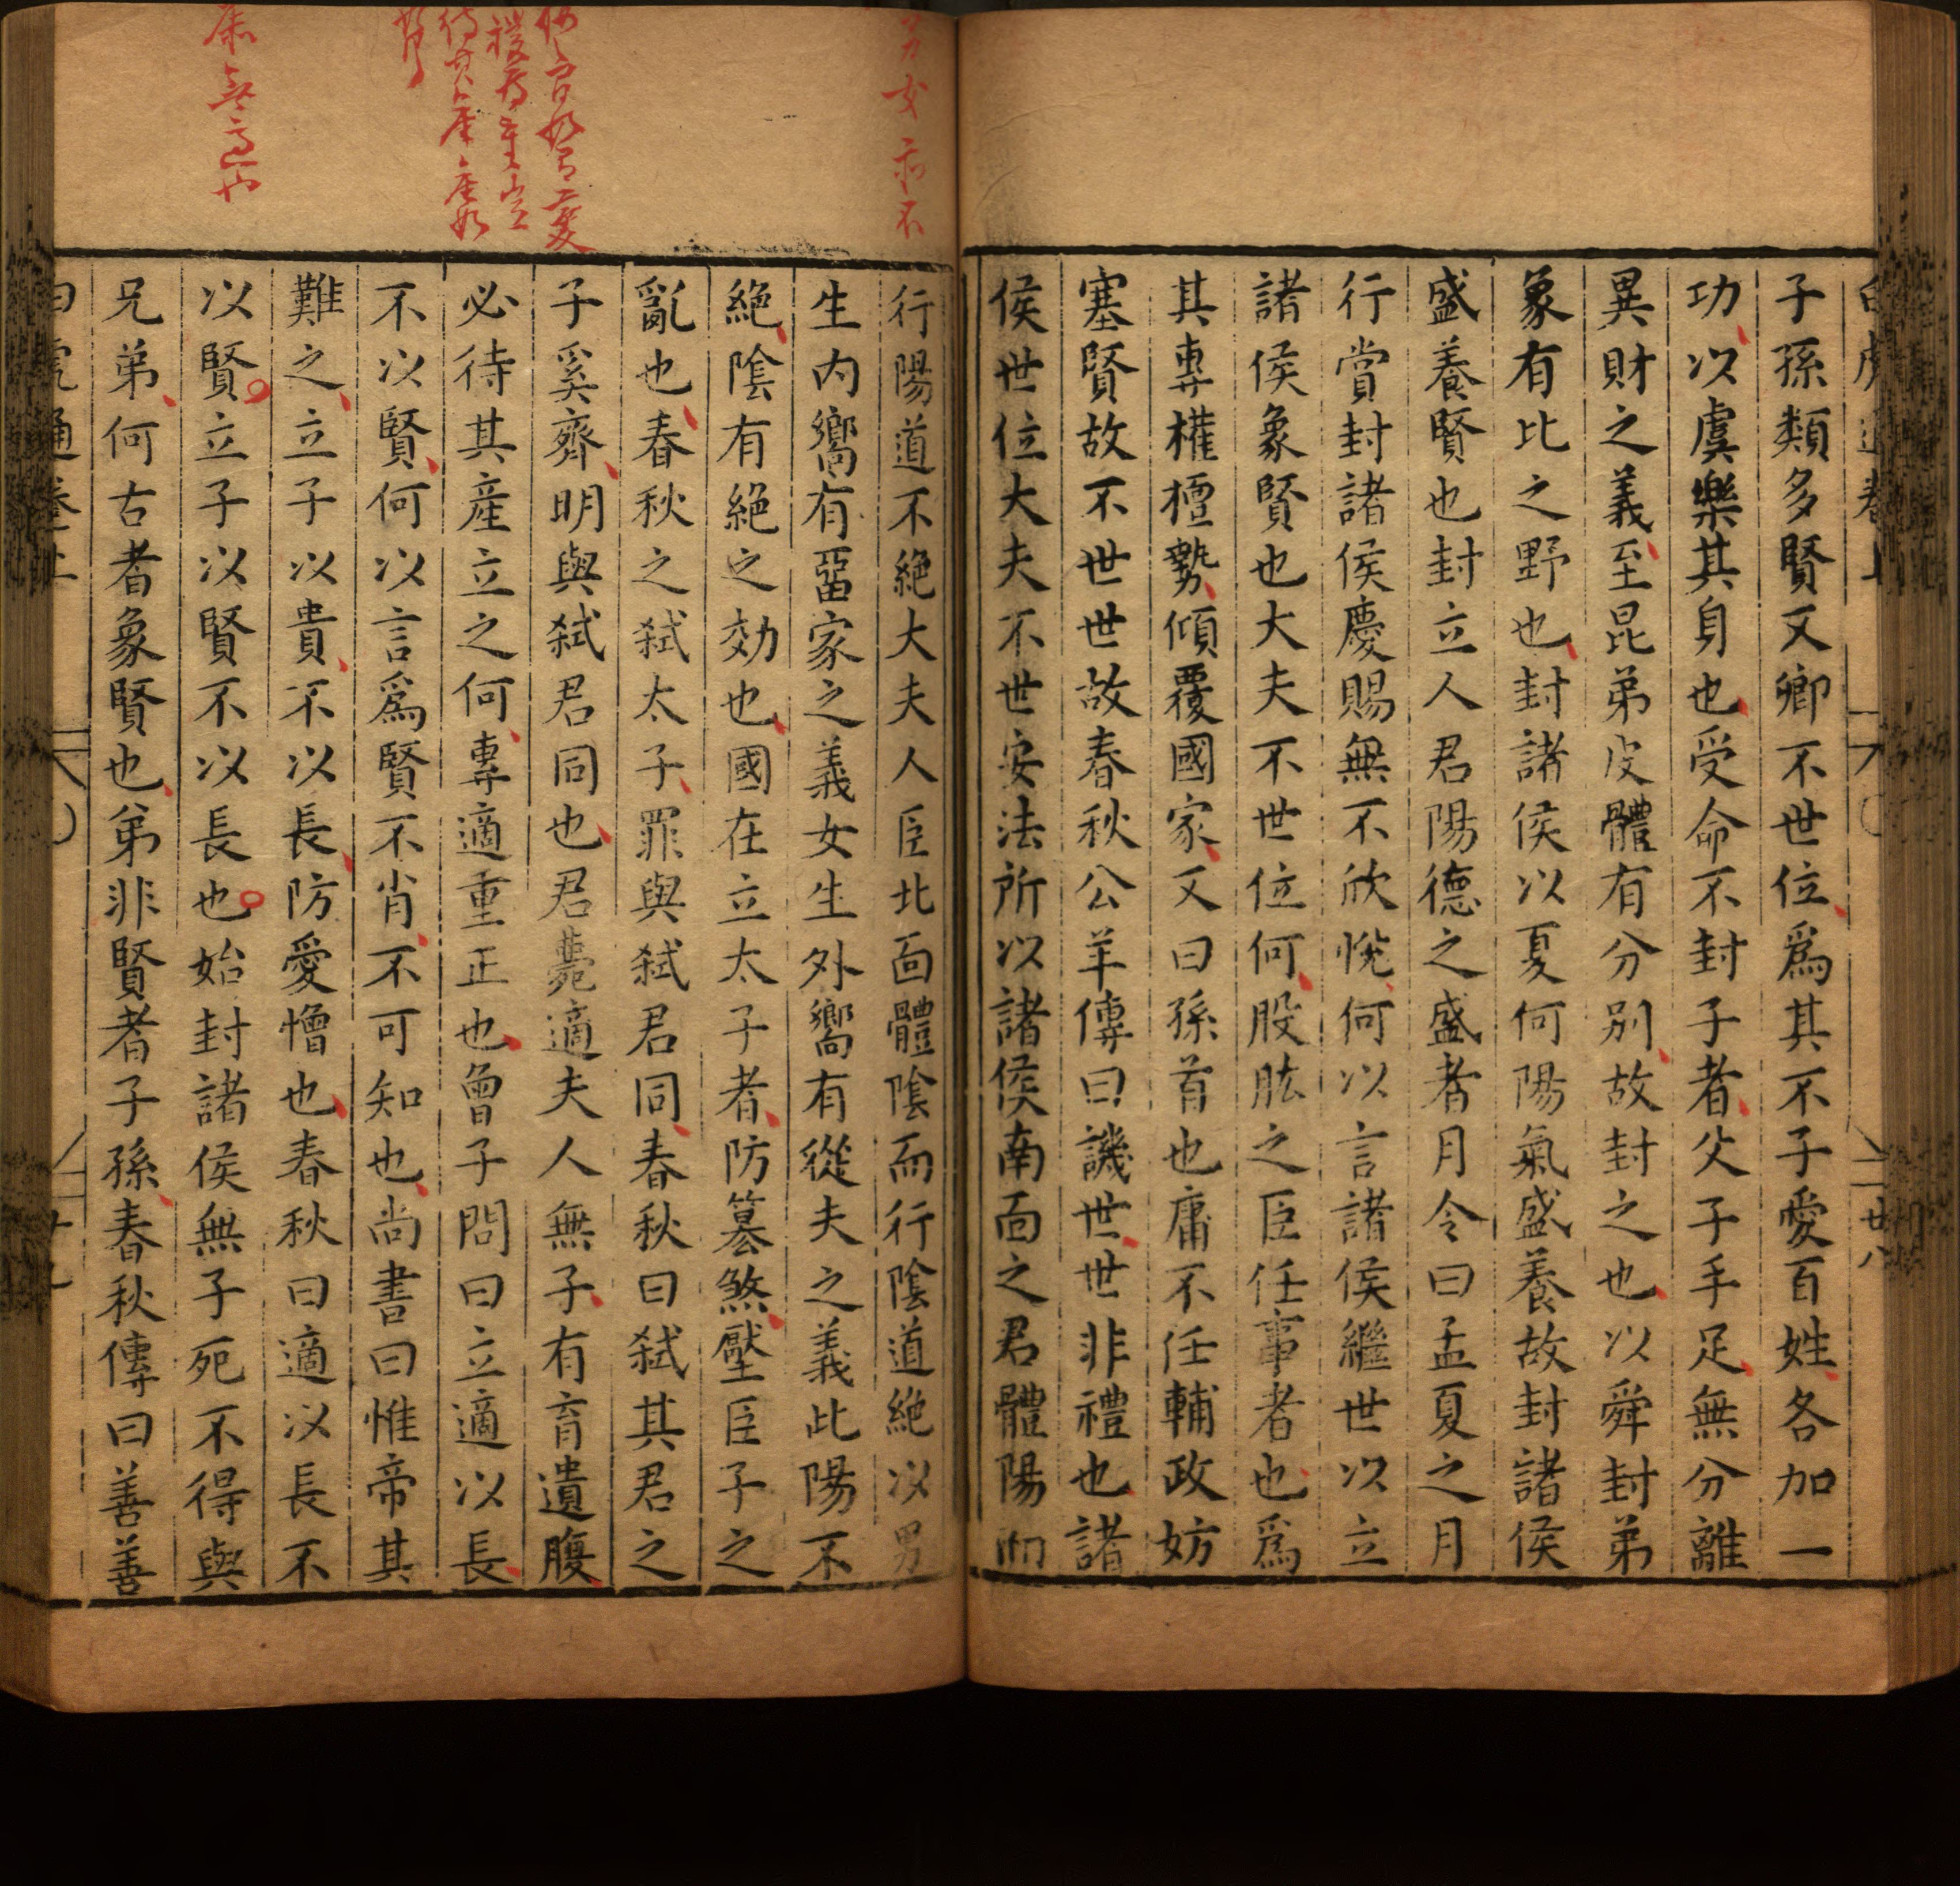 子孫類多賢又卿不世位爲其不子愛百姓各加一
功以虞樂其身也受命不封子者父子手足無分離
異財之義至昆弟皮體有分别故封之也以舜封弟
象有比之野也封諸侯以夏何陽氣盛養故封諸侯
盛養賢也封立人君陽德之盛者月令曰孟夏之月
行賞封諸侯慶賜無不欣悅何以言諸侯繼世以立
諸侯象賢也大夫不世位何股肱之臣任事者也爲
其專權擅勢傾覆國家又曰孫首也庸不任輔政妨
塞賢故不世世故春秋公羊傳曰譏世世非禮也諸
侯世位大夫不世安法所以諸侯南面之君體陽而
行陽道不絶大夫人臣北面體陰而行陰道絶以男
生内嚮有畱家之義女生外嚮有從夫之義此陽不
絶陰有絶之効也國在立太子者防篡煞壓臣子之
亂也春秋之弑太子罪與弑君同春秋曰弑其君之
子奚齊明與弑君同也君薨適夫人無子有育遺腹
必待其産立之何專適重正也曾子問曰立適以長
不以賢何以言爲賢不肖不可知也尚書曰惟帝其
難之立子以貴不以長防愛憎也春秋曰適以長不
以賢立子以賢不以長也始封諸侯無子死不得與
兄弟何古者象賢也弟非賢者子孫春秋傳曰善善
白虎通卷上
男女亦不